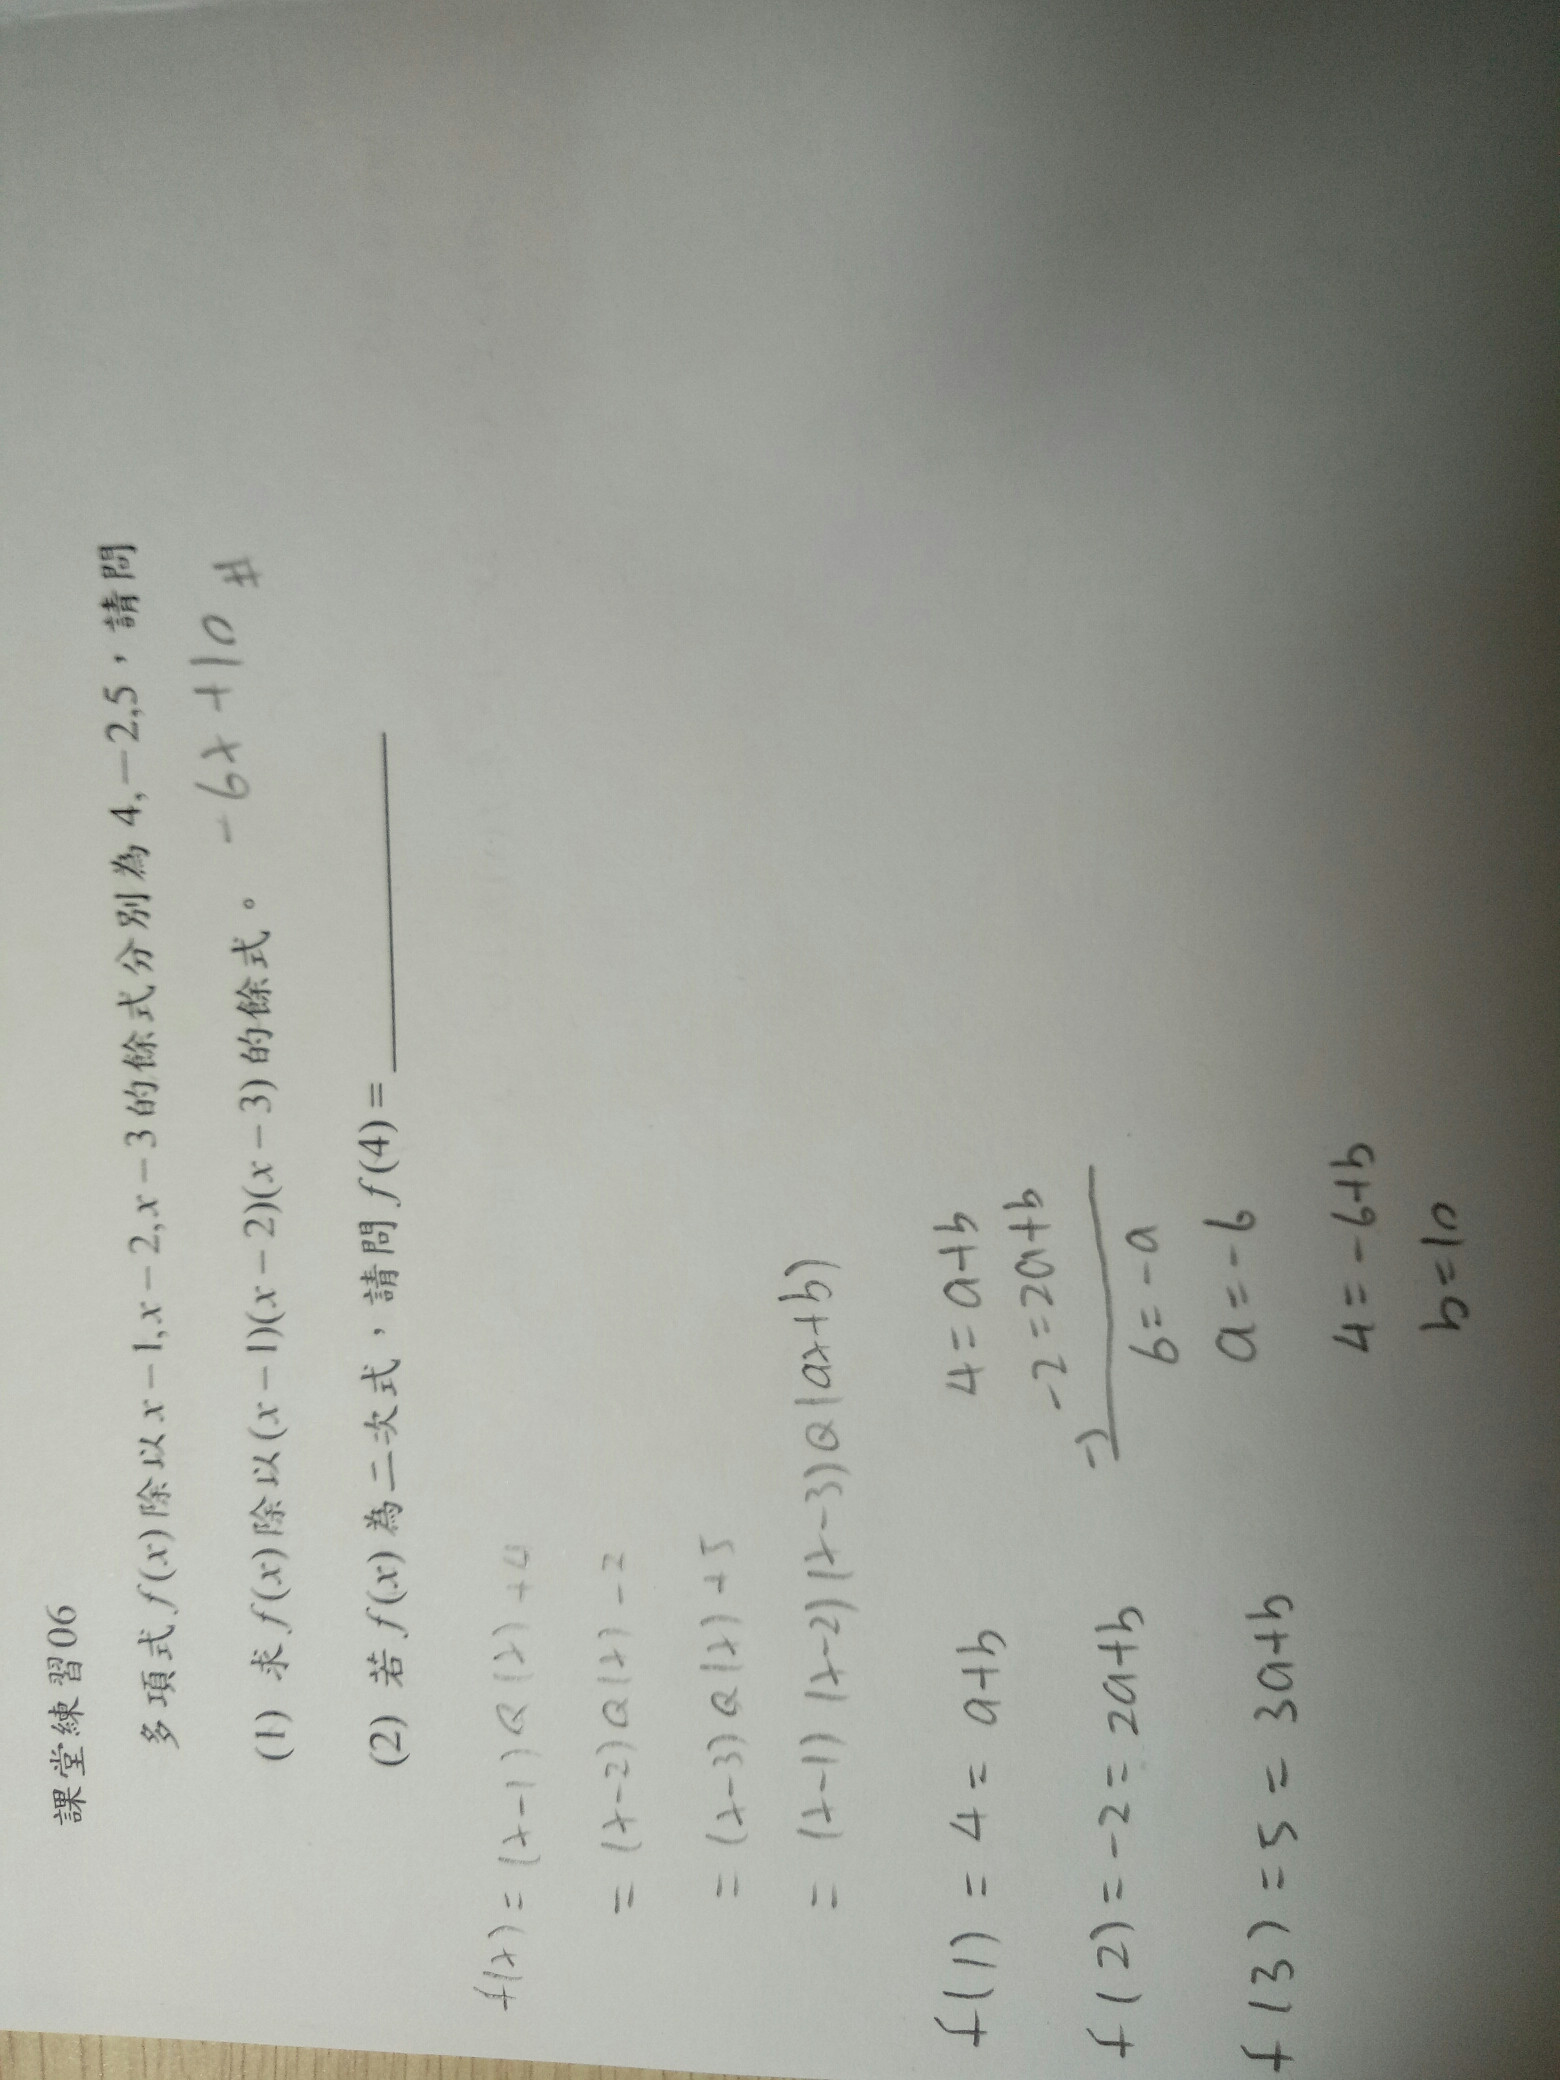 課堂練習06
多項式 f(x) 除以 x−1, x−2, x−3 的餘式分別為 4, −2,5，請問
(1) 求 f(x) 除以 (x−1)(x−2)(x−3) 的餘式。 -6x+10 #
(2) 若 f(x) 為二次式，請問 f(4) = ________
f(x) = (x-1) Q(x) +4
= (x-2) Q(x) -2
= (x-3) Q(x) +5
= (x-1)(x-2)(x-3)Q(ax+b)
f(1) = 4 = a+b
f(2) = -2 = 2a+b
f(3) = 5 = 3a+b
4 = a+b
-) -2 = 2a+b
6 = -a
a = -6
4 = -6+b
b = 10